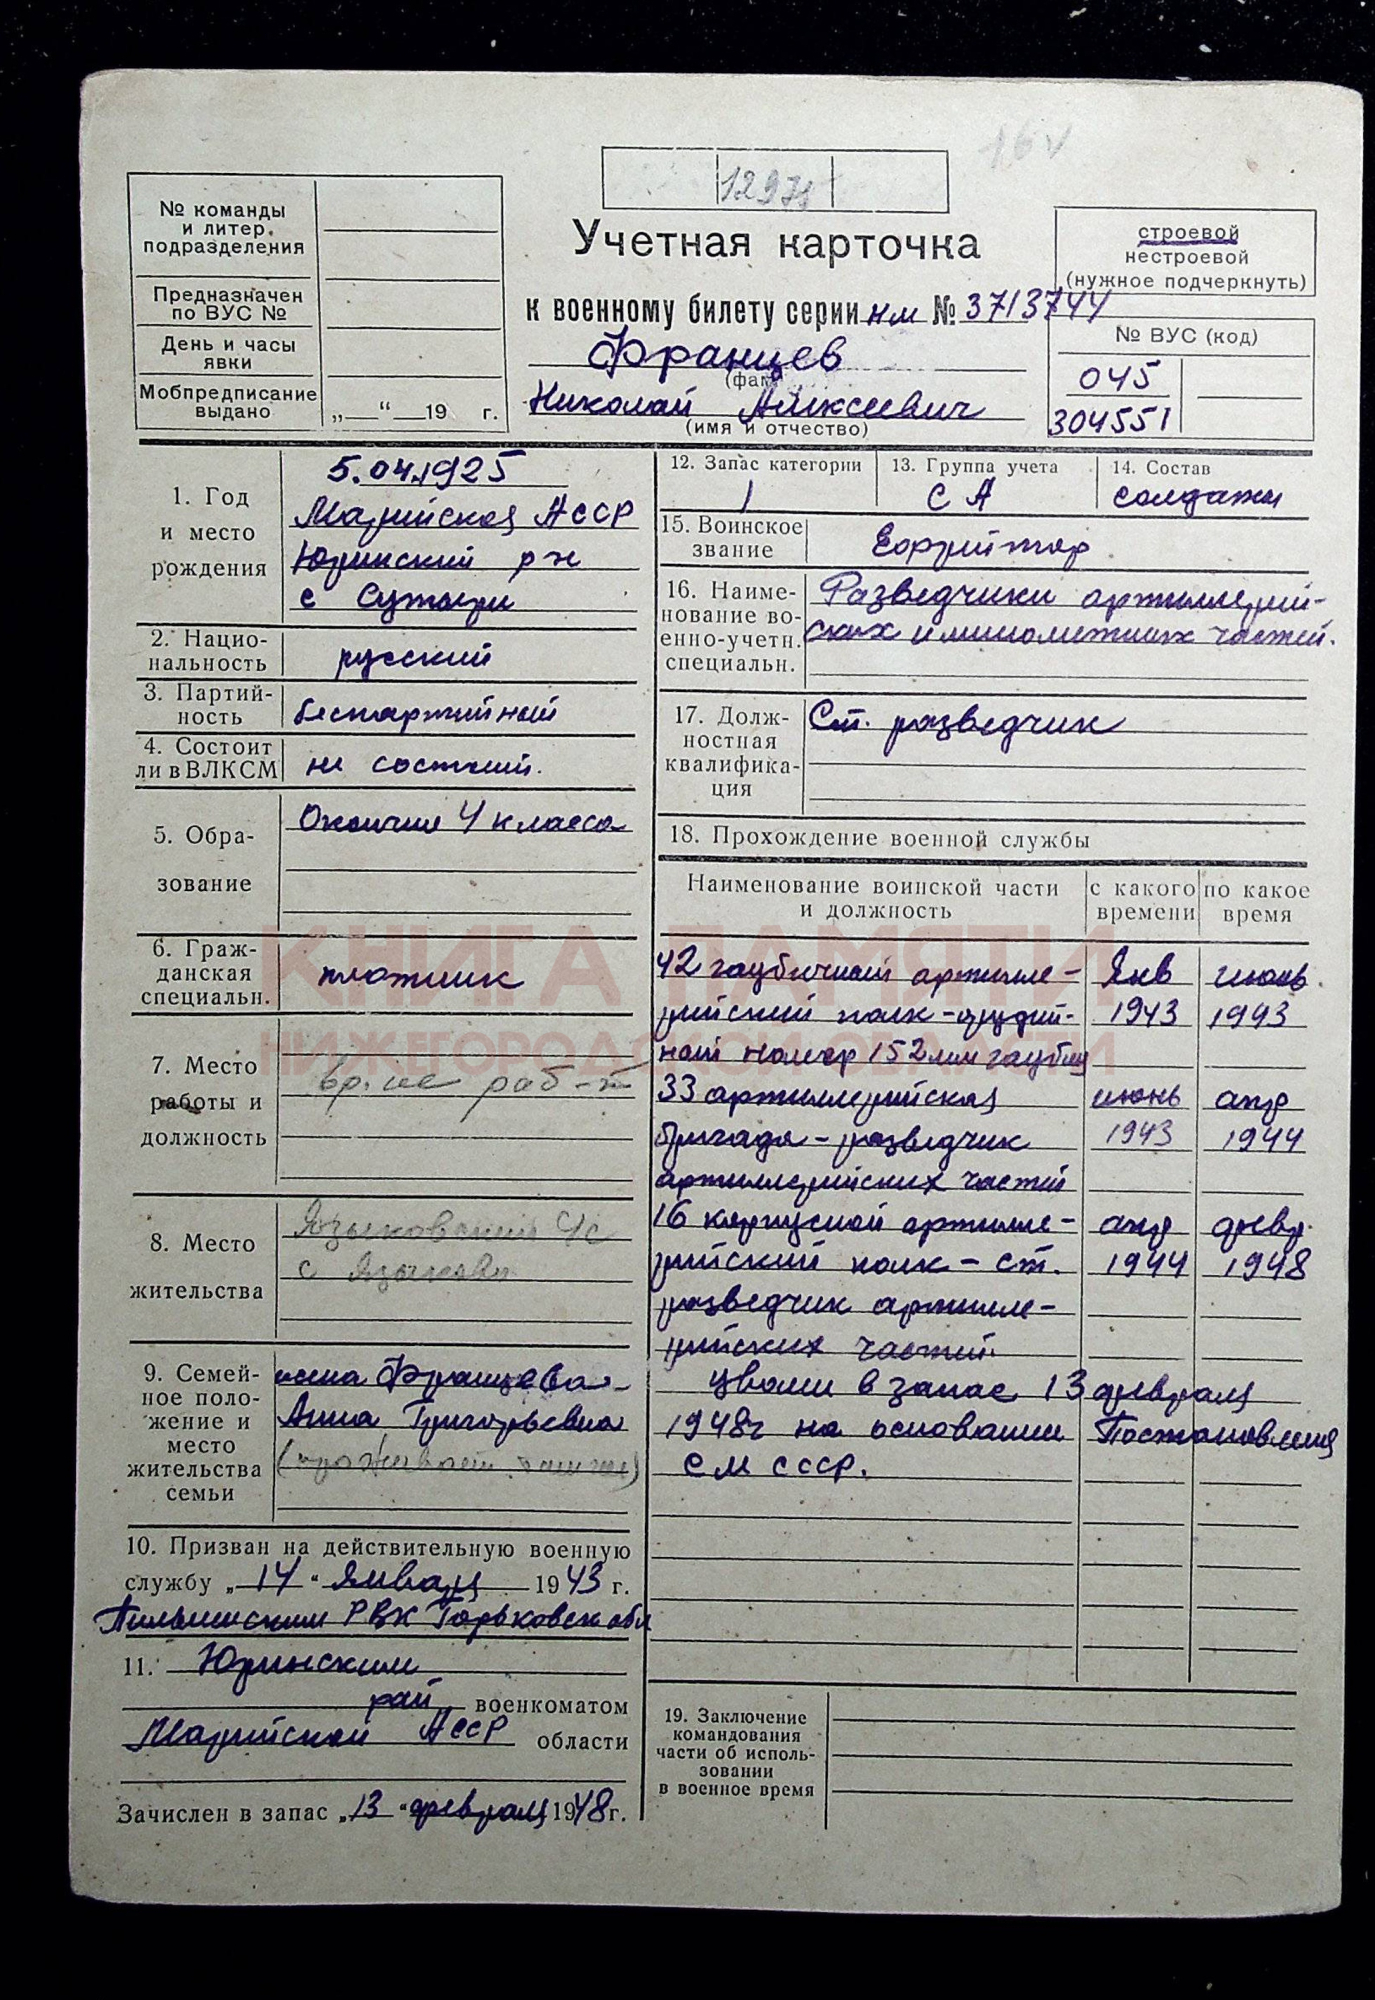 16 v
1297
№ команды
и литер.
подразделения
Предназначен
по ВУС №
День и часы
явки
Мобпредписание
выдано
„ “ 19 г.
Учетная карточка
к военному билету серии нм № 3713744
Францев
(фам
Николай Алексеевич
(имя и отчество)
строевой
нестроевой
(нужное подчеркнуть)
№ ВУС (код)
045
304551
1. Год
и место
рождения
5.04.1925
Марийская АССР
Юринский р-н
с Сумари
2. Нацио-
нальность
русский
3. Партий-
ность
беспартийный
4. Состоит
ли в ВЛКСМ
не состоит.
5. Обра-
зование
Окончил 4 класса
6. Граж-
данская
специальн.
плотник
7. Место
работы и
должность
вр. не раб-т
8. Место
жительства
Языковский с/с
с Языково
9. Семей-
ное поло-
жение и
место
жительства
семьи
жена Францева
Анна Григорьевна
10. Призван на действительную военную
службу „14“ Января 1943 г.
Пильнинским РВК Горьковск обл
11. Юринским
рай военкоматом
Марийской АССР области
Зачислен в запас „13“ февраля 1948 г.
12. Запас категории
1
13. Группа учета
СА
14. Состав
солдаты
15. Воинское
звание
Ефрейтор
16. Наиме-
нование во-
енно-учетн.
специальн.
Разведчики артиллерий-
ских и минометных частей.
17. Долж-
ностная
квалифика-
ция
Ст. разведчик
18. Прохождение военной службы
Наименование воинской части
и должность
с какого
времени
по какое
время
42 гаубичный артилле- Янв июнь
рийский полк - орудий- 1943 1943
ный номер 152 мм гаубиц
33 артиллерийская июнь апр
бригада - разведчик 1943 1944
артиллерийских частей
16 корпусной артилле- апр февр.
рийский полк - ст. 1944 1948
разведчик артилле-
рийских частей.
Уволен в запас 13 февраля
1948г на основании Постановления
СМ СССР.
19. Заключение
командования
части об исполь-
зовании
в военное время
КНИГА ПАМЯТИ
НИЖЕГОРОДСКОЙ ОБЛАСТИ